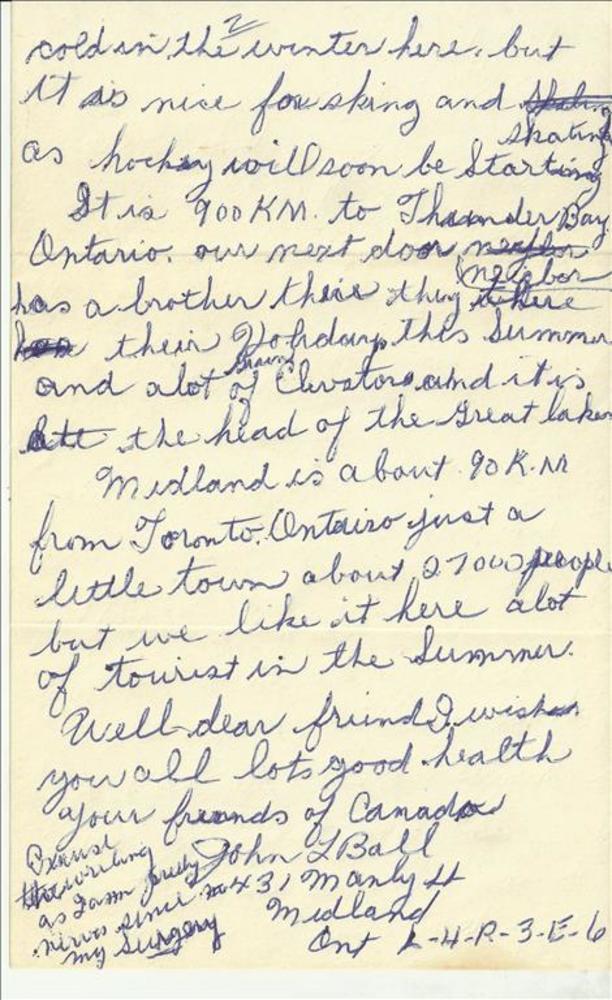 2
cold in the winter here. but
it is nice for sking and
skating
as hockey will soon be Starting
It is 900 KM. to Thunder Bay
Ontario. our next door
neigbor
has a brother there they where
their Holidays this Summer
and alot of Grain Elevators and it is
att the head of the Great lakes
Midland is about 90 K.M
from Toronto. Ontairo just a
little town about people
but we like it here alot
of tourist in the Summer.
Well dear friend I wish
you all lots good health
Your freends of Canada
John L Ball
431 Manly St
Midland
Ont L-4-R-3-E-6
Excuse
the writing
as I am pretty
nervos since
my Surgery